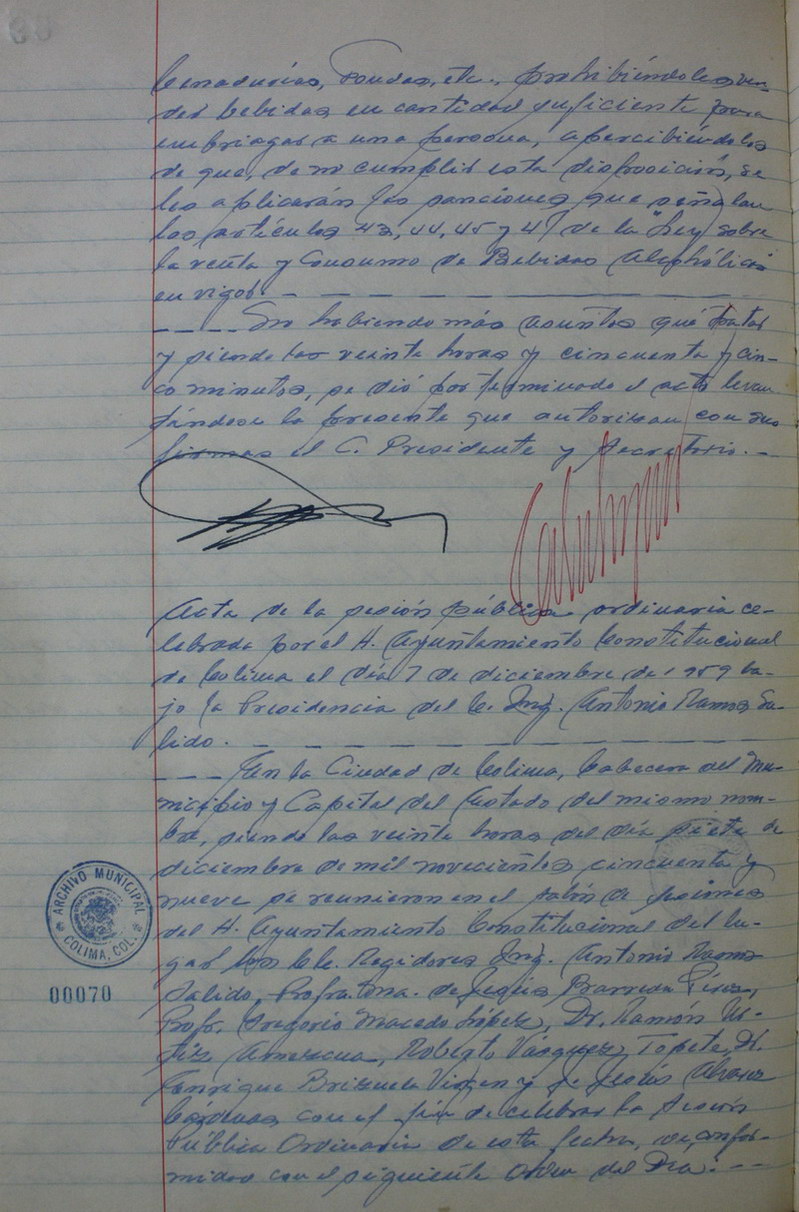 Cenadurías, Fondas, etc., prohibiéndoles ven-
der bebidas en cantidad suficiente para
embriagar a una persona, apercibiéndolos
de que, de no cumplir esta disposición, se
les aplicarán las sanciones que señalan
los artículos 43, 44, 45 y 47 de la "Ley sobre
la venta y Consumo de Bebidas Alcohólicas"
en vigor.
No habiendo más asuntos qué tratar
y siendo las veinte horas y cincuenta y cin-
co minutos, se dió por terminado el acto levan-
tándose la presente que autorizan con sus
firmas el C. Presidente y Secretario.
Acta de la sesión pública ordinaria ce-
lebrada por el H. Ayuntamiento Constitucional
de Colima el día 7 de diciembre de 1959 ba-
jo la Presidencia del C. Ing. Antonio Ramos Sa-
lido.
En la Ciudad de Colima, Cabecera del Mu-
nicipio y Capital del Estado del mismo nom-
bre, siendo las veinte horas del día siete de
diciembre de mil novecientos cincuenta y
nueve se reunieron en el salón de sesiones
del H. Ayuntamiento Constitucional del lu-
gar los CC. Regidores Ing. Antonio Ramos
Salido, Profra. Ma. de Jesús Barreda
Profr. Gregorio Macedo López, Dr. Ramón
Amezcua, Roberto Vásquez Topete, H.
Enrique Brizuela Virgen y J. Jesús Alvarez
Cárdenas con el fin de celebrar la Sesión
Pública Ordinaria de esta fecha, de confor-
midad con el siguiente Orden del Día:
ARCHIVO MUNICIPAL
COLIMA, COL.
00070